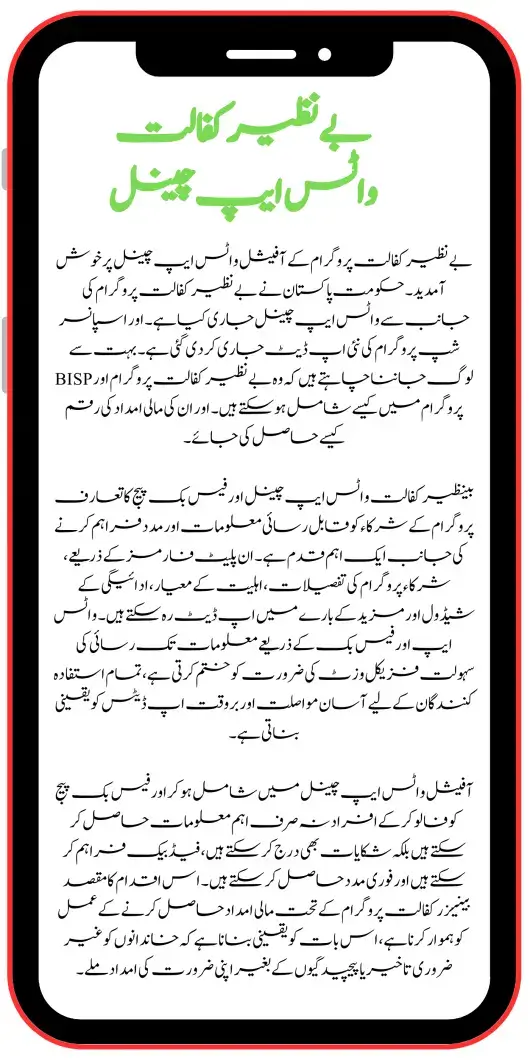 بے نظیر کفالت
واٹس ایپ چینل
بے نظیر کفالت پروگرام کے آفیشل واٹس ایپ چینل پر خوش
آمدید۔ حکومت پاکستان نے بے نظیر کفالت پروگرام کی
جانب سے واٹس ایپ چینل جاری کیا ہے۔ اور اسپانسر
شپ پروگرام کی نئی اپ ڈیٹ جاری کر دی گئی ہے۔ بہت سے
لوگ جاننا چاہتے ہیں کہ وہ بے نظیر کفالت پروگرام اور BISP
پروگرام میں کیسے شامل ہو سکتے ہیں۔ اور ان کی مالی امداد کی رقم
کیسے حاصل کی جائے۔
بینظیر کفالت واٹس ایپ چینل اور فیس بک پیج کا تعارف
پروگرام کے شرکاء کو قابل رسائی معلومات اور مدد فراہم کرنے
کی جانب ایک اہم قدم ہے۔ ان پلیٹ فارمز کے ذریعے،
شرکاء پروگرام کی تفصیلات، اہلیت کے معیار، ادائیگی کے
شیڈول اور مزید کے بارے میں اپ ڈیٹ رہ سکتے ہیں۔ واٹس
ایپ اور فیس بک کے ذریعے معلومات تک رسائی کی
سہولت فزیکل وزٹ کی ضرورت کو ختم کرتی ہے، تمام استفادہ
کنندگان کے لیے آسان مواصلت اور بروقت اپ ڈیٹس کو یقینی
بناتی ہے۔
آفیشل واٹس ایپ چینل میں شامل ہو کر اور فیس بک پیج
کو فالو کر کے افراد نہ صرف اہم معلومات حاصل کر
سکتے ہیں بلکہ شکایات بھی درج کر سکتے ہیں، فیڈ بیک فراہم کر
سکتے ہیں اور فوری مدد حاصل کر سکتے ہیں۔ اس اقدام کا مقصد
بینیزر کفالت پروگرام کے تحت مالی امداد حاصل کرنے کے عمل
کو ہموار کرنا ہے، اس بات کو یقینی بنانا ہے کہ خاندانوں کو غیر
ضروری تاخیر یا پیچیدگیوں کے بغیر اپنی ضرورت کی امداد ملے۔